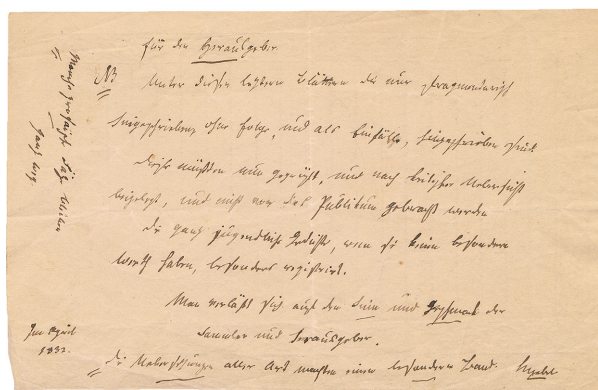 Für den Herausgeber.
NB Unter diesen letztern Blättern die nur fragmentarisch
hingeschrieben ohne Folge, und als Einfälle, hingeschrieben sind.
Diese müßten nun geprüft, und nach kritischer Uebersicht
beigelegt, und nicht vor das Publikum gebracht werden
die ganz jugendliche Gedichte, wenn sie keinen besondern
Werth haben, besonders registrirt.
Man verläßt sich auf den Sinn und Geschmack der
Sammler und Herausgeber.
die Uebersetzungen aller Art machten einen besondern Band.
Im April
1832.
Manche
ganz weg